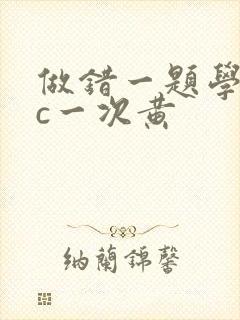 做錯一題學
c一次黄
纳蘭錦馨